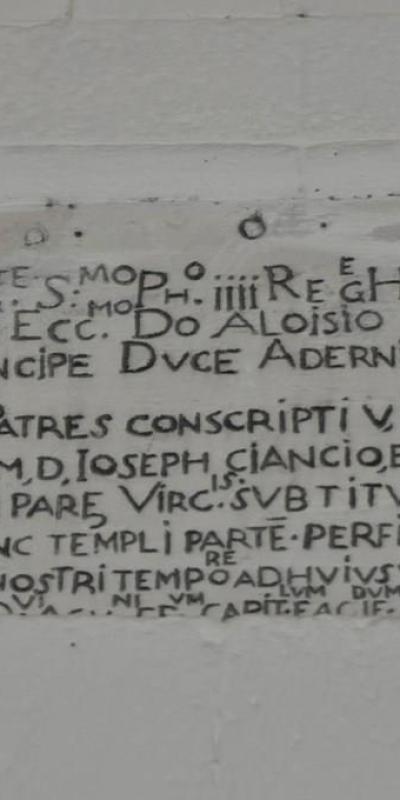 TE. S: MO PH. O iiii RE E GH
ECC. MO DO ALOISIO
NCIPE DVCE ADERN
ATRES CONSCRIPTI V,
M, D, IOSEPH CIANCIO, E
PARE VIRC: IS. SVB TITV
NC TEMPLI PARTĒ · PERFI
NOSTRI TEMPO RE AD HVIVS
NI VM LVM DVM CADIT. FACIE.